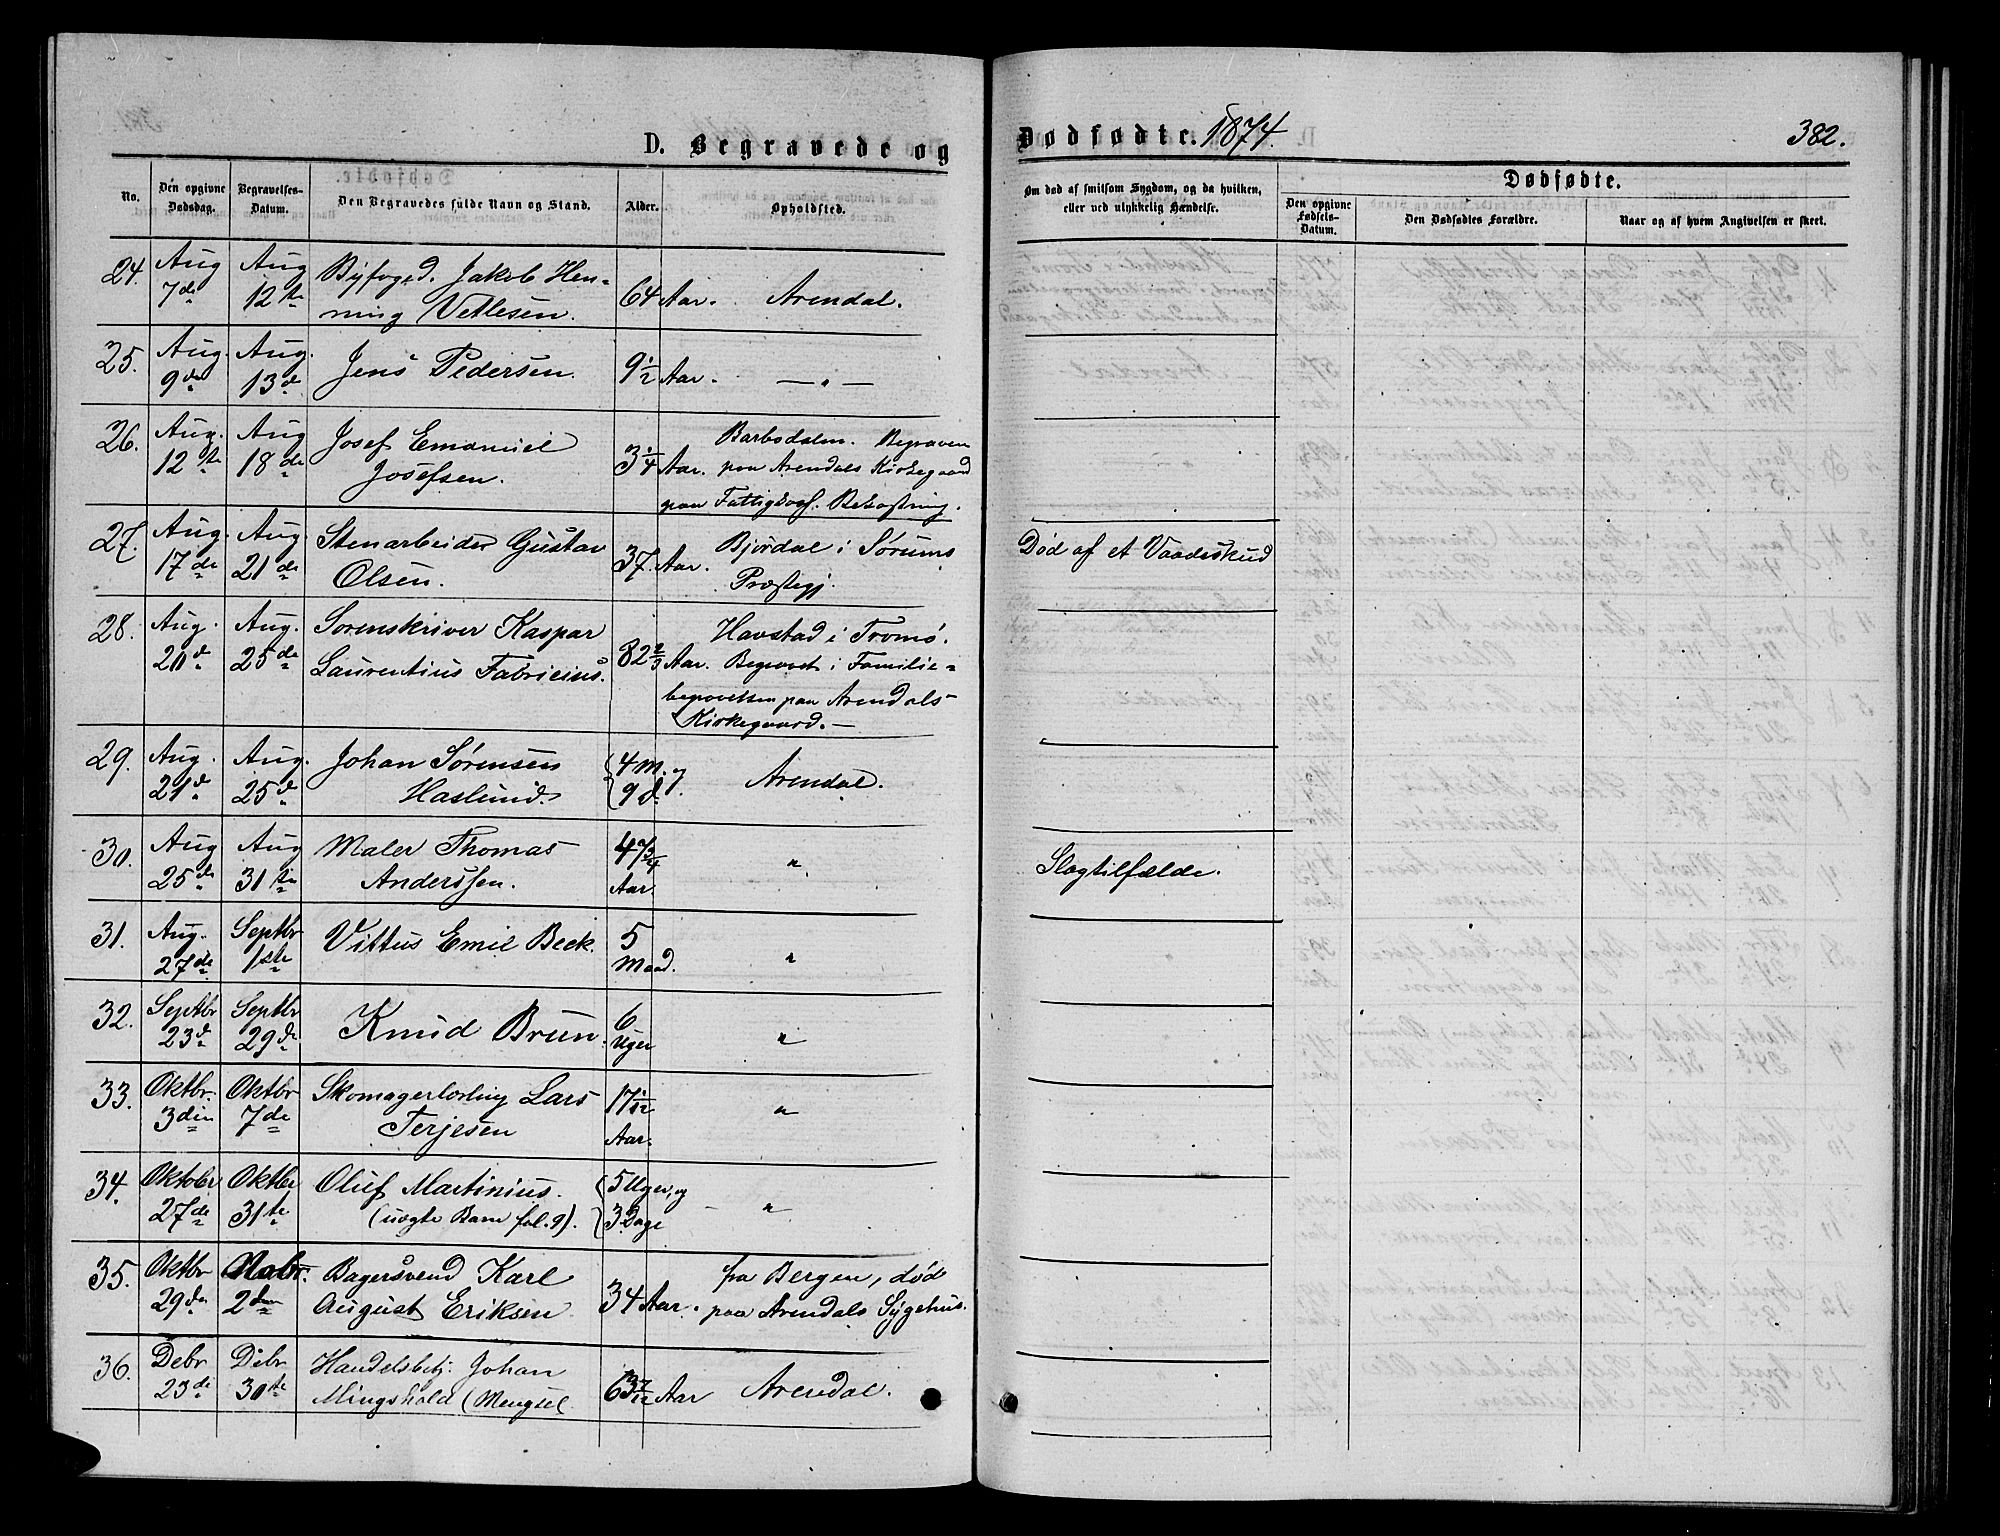 D. Begravede og Dødfødte. 1874. 382.
No. Den opgivne Dødsdag. Begravelses-Datum. Den Begravedes fulde Navn og Stand. Alder. Opholdsted. Om død af smitsom Sygdom, og da hvilken, eller ved ulykkelig Hændelse. Dødfødte. Den opgivne Fødsels-Datum. Den Dødfødtes Forældre. Naar og af hvem Angivelsen er skeet.
24. Aug Aug Byfoged. Jakob Hen-
7de 12te ning Vetlesen. 64 Aar. Arendal.
25. Aug. Aug. Jens Pedersen. 9½ Aar. — " —
9de 13de
26. Aug. Aug Josef Emanuel Barbodalen. Begraven
12te 18de Josefsen. 3¼ Aar. paa Arendals Kirkegaard
paa Fattigkass. Bekostning.
27. Aug. Aug. Stenarbeider Gustav 37. Aar. Bjordal i Sørums Død af et Vaadeskud
17de 21de Olsen. Præstegj.
28. Aug. Aug. Sorenskriver Kaspar Havstad i Tromø.
20de 25de Laurentius Fabricius. 82⅔ Aar. Begravet i Familie-
begravelsen paa Arendals
Kirkegaard. —
29. Aug. Aug. Johan Sørensen 4 M. og Arendal.
21de 25de Haslund. 9 d.
30. Aug Aug Maler Thomas 47¾ " Slagtilfælde.
25de 31te Anderssen. Aar.
31. Aug. Septbr Vittus Emil Beck. 5 "
27de 1ste Maad.
32. Septbr Septbr Knud Brun. 6 "
23de 29de Uger
33. Oktbr. Oktbr Skomagerlærling Lars 17 1/12 "
3die 7de Terjesen Aar.
34. Oktober Oktbr Oluf Martinius. 5 Uger, og "
27de 31te (uægte Barn fol. 9). 3 Dage
35. Oktbr Nobr. Bagersvend Karl fra Bergen, død
29de 2den August Eriksen 34 Aar. paa Arendals Sygehus.
36. Debr Debr Handelsbetj. Johan
23de 30te Mingshold (Mengsel 63 7/12 Aar Arendal.